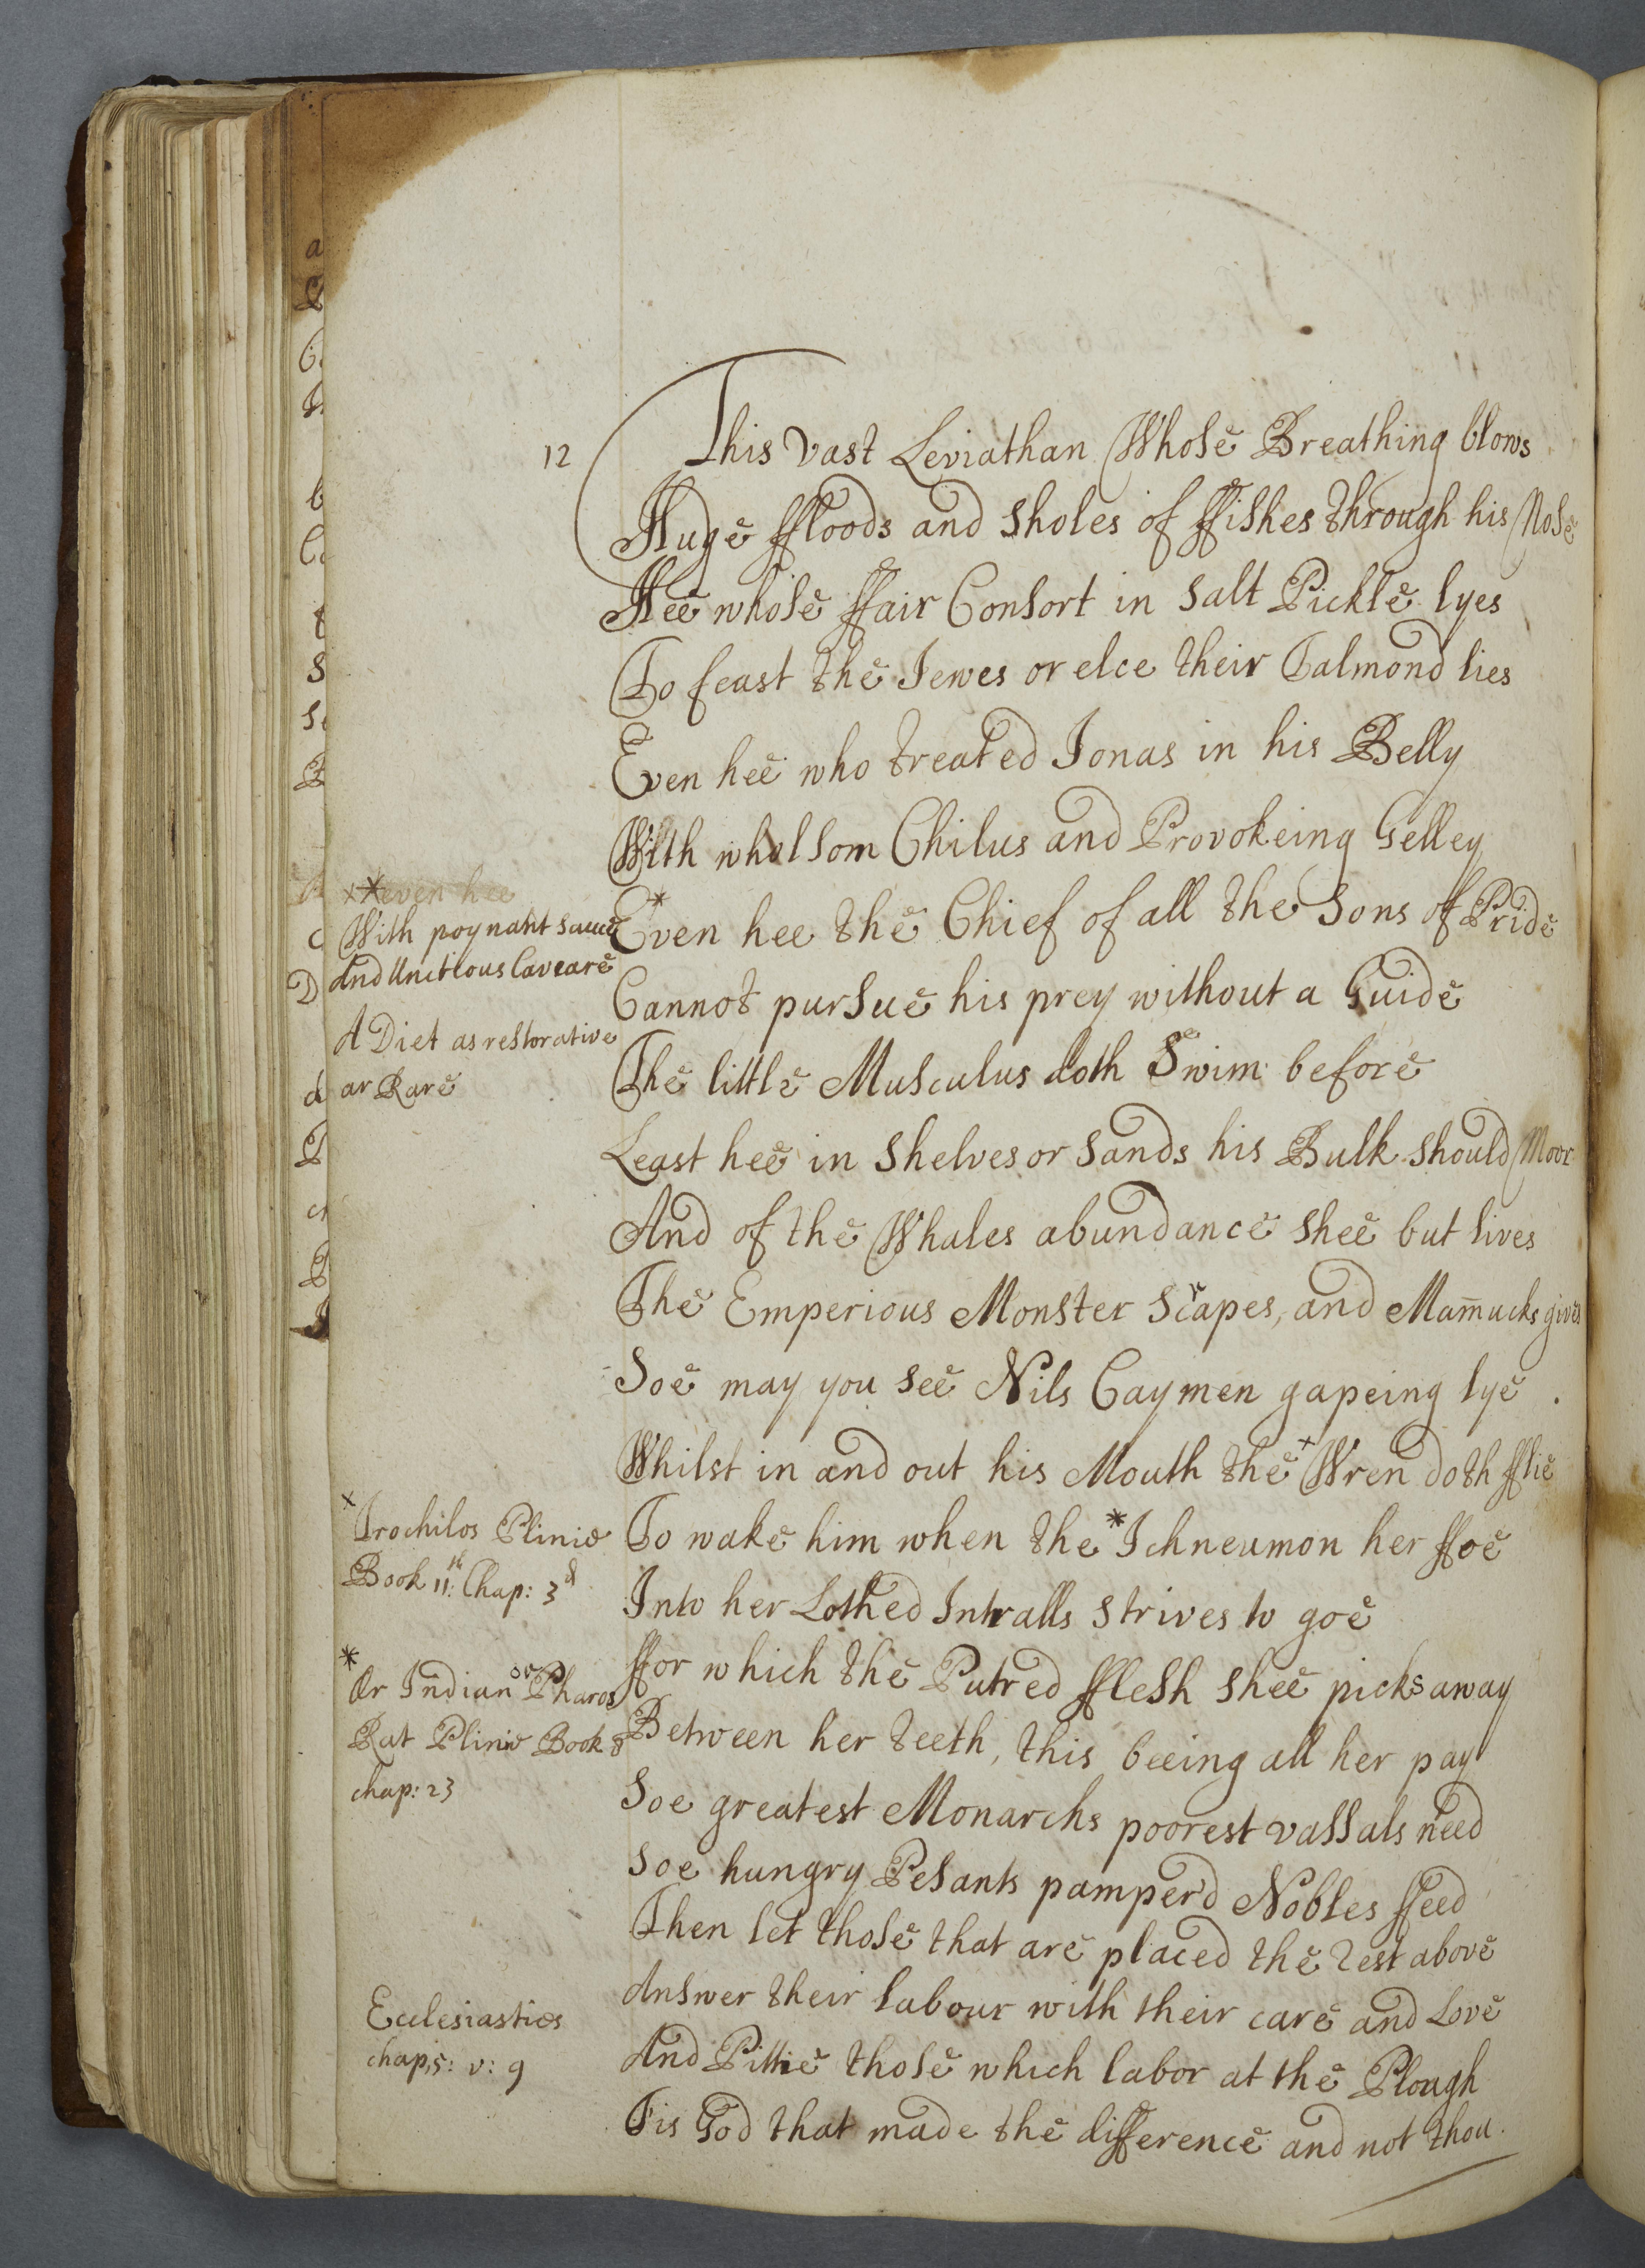 12
This Vast Leviathan Whose Breathing blows
Huge ffloods and sholes of ffishes through his Nose
Hee whose ffair Consort in salt Pickle lyes
To feast the Jewes or elce their Talmond lies
Even hee who treated Jonas in his Belly
With wholsom Chilus and Provokeing Gelley
*Even hee the Chief of all the Sons of Pride
Cannot pursue his prey without a Guide
The little Musculus doth Swim before
Least hee in shelves or sands his Bulk should Moor
And of the Whales abundance shee but lives
The Emperious Monster Scrapes, and Mam̄ucks gives
Soe may you see Nils Caymen gapeing lye
Whilst in and out his Mouth the +Wren doth fflie
To wake him when the *Ichneumon her ffoe
Into her Lothed Intralls strives to goe
ffor which the Putred fflesh shee picks away
Between her teeth, this beeing all her pay
Soe greatest Monarchs poorest vassals need
Soe hungry Pesants pamper'd Nobles ffeed
Then let those that are placed the rest above
Answer their labour with their care and Love
And Pittie those which labor at the Plough
Tis God that made the difference and not thou.
x*even hee
With poynant sauce
And Unctious Caveare
A Diet as restorative
as Rare
x
Trochilos Plinie
Book 11th: Chap: 3d
*
Or Indian or Pharos
Rat Plinie Book 8
chap: 23
Ecclesiasties
chap,5: v: 9